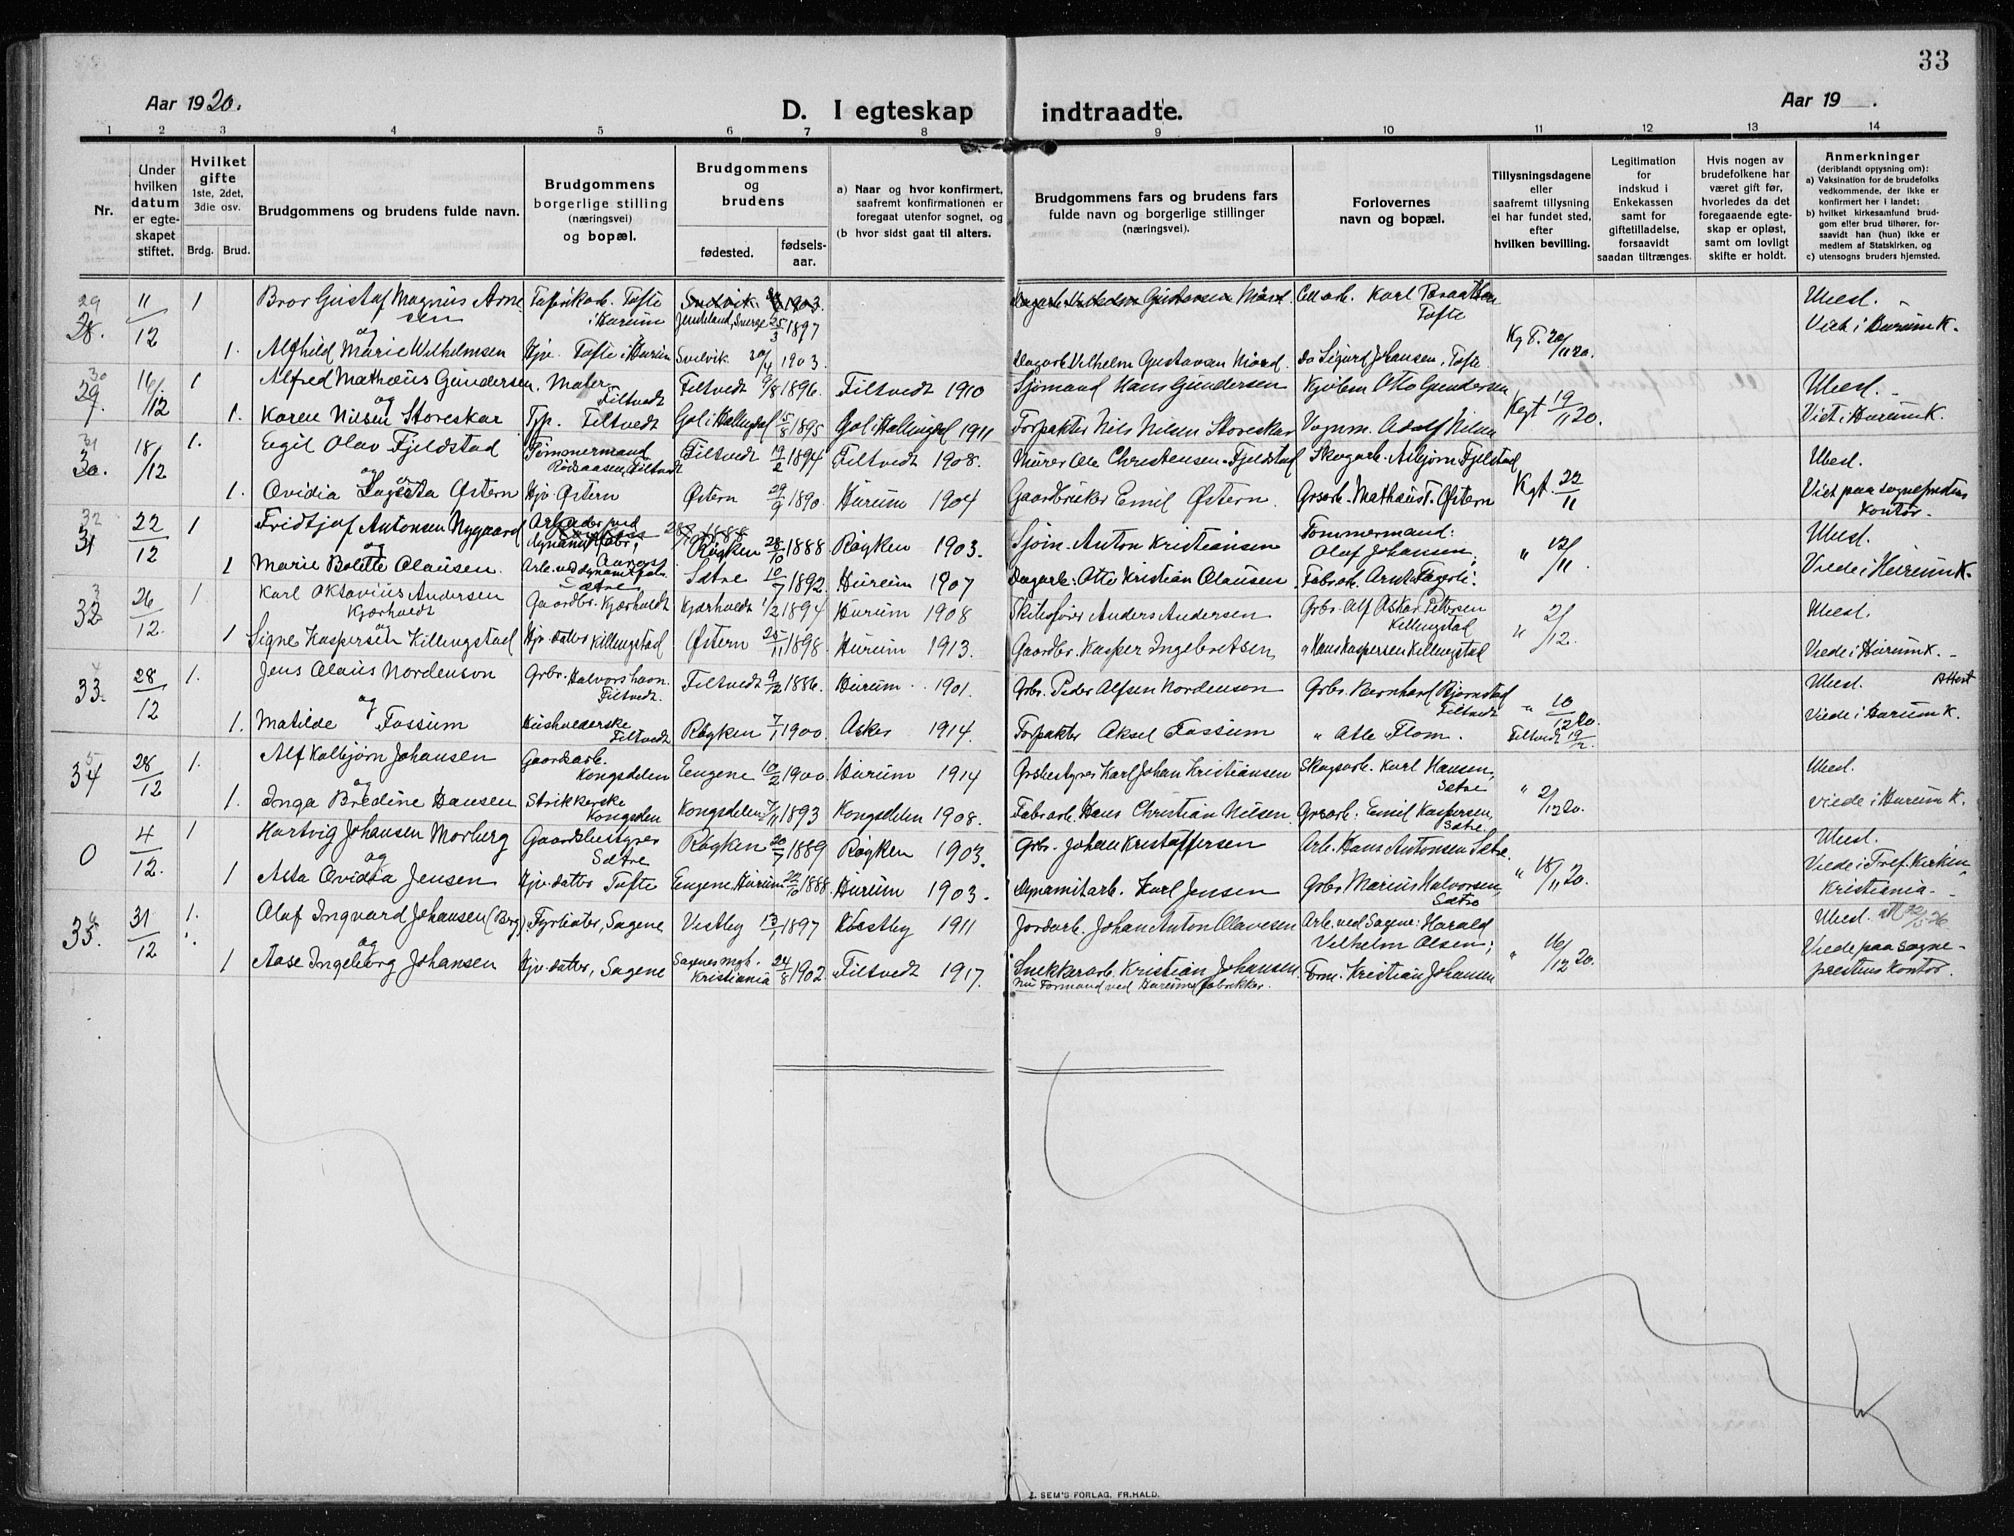 33
Aar 1920.
D. I egteskap indtraadte.
Aar 19 .
1 2 3 4 5 6 7 8 9 10 11 12 13 14
Nr.
Under hvilken datum er egteskapet stiftet.
Hvilket gifte 1ste, 2det, 3die osv.
Brdg. Brud.
Brudgommens og brudens fulde navn.
Brudgommens borgerlige stilling (næringsvei) og bopæl.
Brudgommens og brudens
fødested. fødsels-aar.
a) Naar og hvor konfirmert, saafremt konfirmationen er foregaat utenfor sognet, og
(b hvor sidst gaat til alters.
Brudgommens fars og brudens fars fulde navn og borgerlige stillinger (næringsvei).
Forlovernes navn og bopæl.
Tillysningsdagene eller saafremt tillysning ei har fundet sted, efter hvilken bevilling.
Legitimation for indskud i Enkekassen samt for giftetilladelse, forsaavidt saadan tiltrænges.
Hvis nogen av brudefolkene har været gift før, hvorledes da det foregaaende egteskap er opløst, samt om lovligt skifte er holdt.
Anmerkninger (deriblandt opjysning om):
a) Vaksination for de brudefolks vedkommende, der ikke er konfirmert her i landet;
b) hvilket kirkesamfund brudgom eller brud tilhører, forsaavidt han (hun) ikke er medlem av Statskirken, og
c) utensogns bruders hjemsted.
29 28. 11/12 1 Bror Gustaf Magnus Arnesen Fabrikarb. Tofte i Hurum Svelvik 1903. Sverge 25/3 1897 Cell. arb. Karl Braathen Tofte Ubesl.
og
1. Alfhild Marie Wilhelmsen Hjv. Tofte i Hurum Svelvik 20/4 1903. Dagarb. Vilhelm Gustavsen Do Sigurd Johansen, Tofte Kg T. 20/11 20. Viet i Hurum K.
30 29 16/12 1 Alfred Mathæus Gundersen, Mater Filtvedt Filtvedt 9/8 1896. Filtvedt 1910 Sjømand Hans Gundersen Kjøbm Otto Gundersen Ubesl.
og
1. Karen Nilsen Storeskar Tjp. Filtvedt Gol i Hallingdal 15/8 1895 Gol i Hallingdal 1911 Forpakter Nils Nilsen Storeskar Vognm. Adolf Nilsen Kgt 19/11 20. Viet i Hurum K.
31 30. 18/12 1. Egil Olav Fjeldstad Tømmermand Rødsaasen, Filtvedt Filtvedt 19/2 1894 Filtvedt 1908. Murer Ole Christensen Fjeldstad Skogarb. Asbjørn Fjelstad Ubesl.
og
1. Ovidia Østern Hjv. Østern Østern 29/9 1890. Hurum 1904 Gaardbruker Emil Østern Grsarb. Mathæus T. Østern Kgt. 22/11 Viet paa sogneprestens kontor.
32 31 22/12 1 Fridtjof Antonsen Nygaard Arbeider ved dynamitfabr., Røyken 28/10 1888 Røyken 1903. Sjøm. Anton Kristiansen Tømmermand: Olaf Johansen, Ubesl.
og
1 Marie Bolette Olausen. Arb. ved dynamitfabr. Sætre Sætre 10/7 1892. Hurum 1907 Dagarb. Otto Kristian Olausen Fabrarb. Arnt Fagerli. " 12/11 Viede i Hurum K.
3 32 26/12. 1 Karl Oktavius Andersen Kjærholdt Gaardbr. Kjærholdt Kjærholdt 1/2 1894 Hurum 1908 Skibsfører Anders Andersen Grbr. Alf Oskar Pettersen Killingstad Ubesl.
og
1 Signe Kaspersen Killingstad Hjv. datter Killingstad Østern 25/11 1898 Hurum 1913. Gaardbr. Kasper Ingebretsen " Hans Kaspersen Killingstad " 2/12. Viede i Hurum K.
4 33. 28/12 1. Jens Olaus Nordenson Grbr. Halvorshavn. Filtvedt. Filtvedt 9/12 1886. Hurum. 1901. Grbr. Peder Alfsen Nordenson Grbr. Bernhard Bjørnstad Filtvedt Ubesl. Attest
og
1. Matilde Fossum Husholderske Filtvedt Røyken 7/1 1900. Asker 1914. Forpakter Aksel Fossum " Atle Flom. " 10/12 20. Filtvedt 19/12. Viede i Hurum K.
5 34 28/12 1. Alf Kolbjørn Johansen Gaardsarb. Kongsdelen Eugene 10/2 1900 Hurum 1914 Grsbestyrer Karl Johan Kristiansen Skogsarb. Karl Hansen, Sætre Ubesl.
og
1. Inga Bredine Hansen Strikkerske Kongsdelen Kongsdelen 7/11 1893 Kongsdelen 1908. Fabrarb. Hans Christian Nilsen. Grsarb. Emil Kaspersen, Sætre " 2/12 20. Viede i Hurum K.
0 4/12. 1 Hartvig Johansen Morberg Gaardsbestyrer Sætre Røyken 20/7 1889 Røyken 1903. Grbr. Johan Kristoffersen Arb. Hans Antonsen Sætre. Ubesl.
og
1 Asta Ovidia Jensen Hjv. datter Tofte Eugene Hurum 22/10 1888. Hurum 1903. Dynamitarb. Karl Jensen Grbr Marius Halvorsen, Sætre " 18/11 20. Viede i Tref. Kirken, Kristiania.
6 35. 31/12 1. Olaf Ingvard Johansen (Berg) Fyrbøter, Sagene Vestby 13/1 1897 Vestby 1911 Jordarb. Johan Anton Olavesen Arb. ved Sagene: Harald Vilhelm Olsen; Ubesl.
og
1 Aase Ingeborg Johansen Hjv. datter, Sagene Sagenes mgh. Kristiania 24/8 1902 Filtvedt 1917. Snekkerarb. Kristian Johansen. nu Formand ved Hurum fabrikker. Form. Kristian Johansen " 16/12 20. Viede paa sogneprestens kontor.
E. SEM'S FORLAG, FR.HALD.